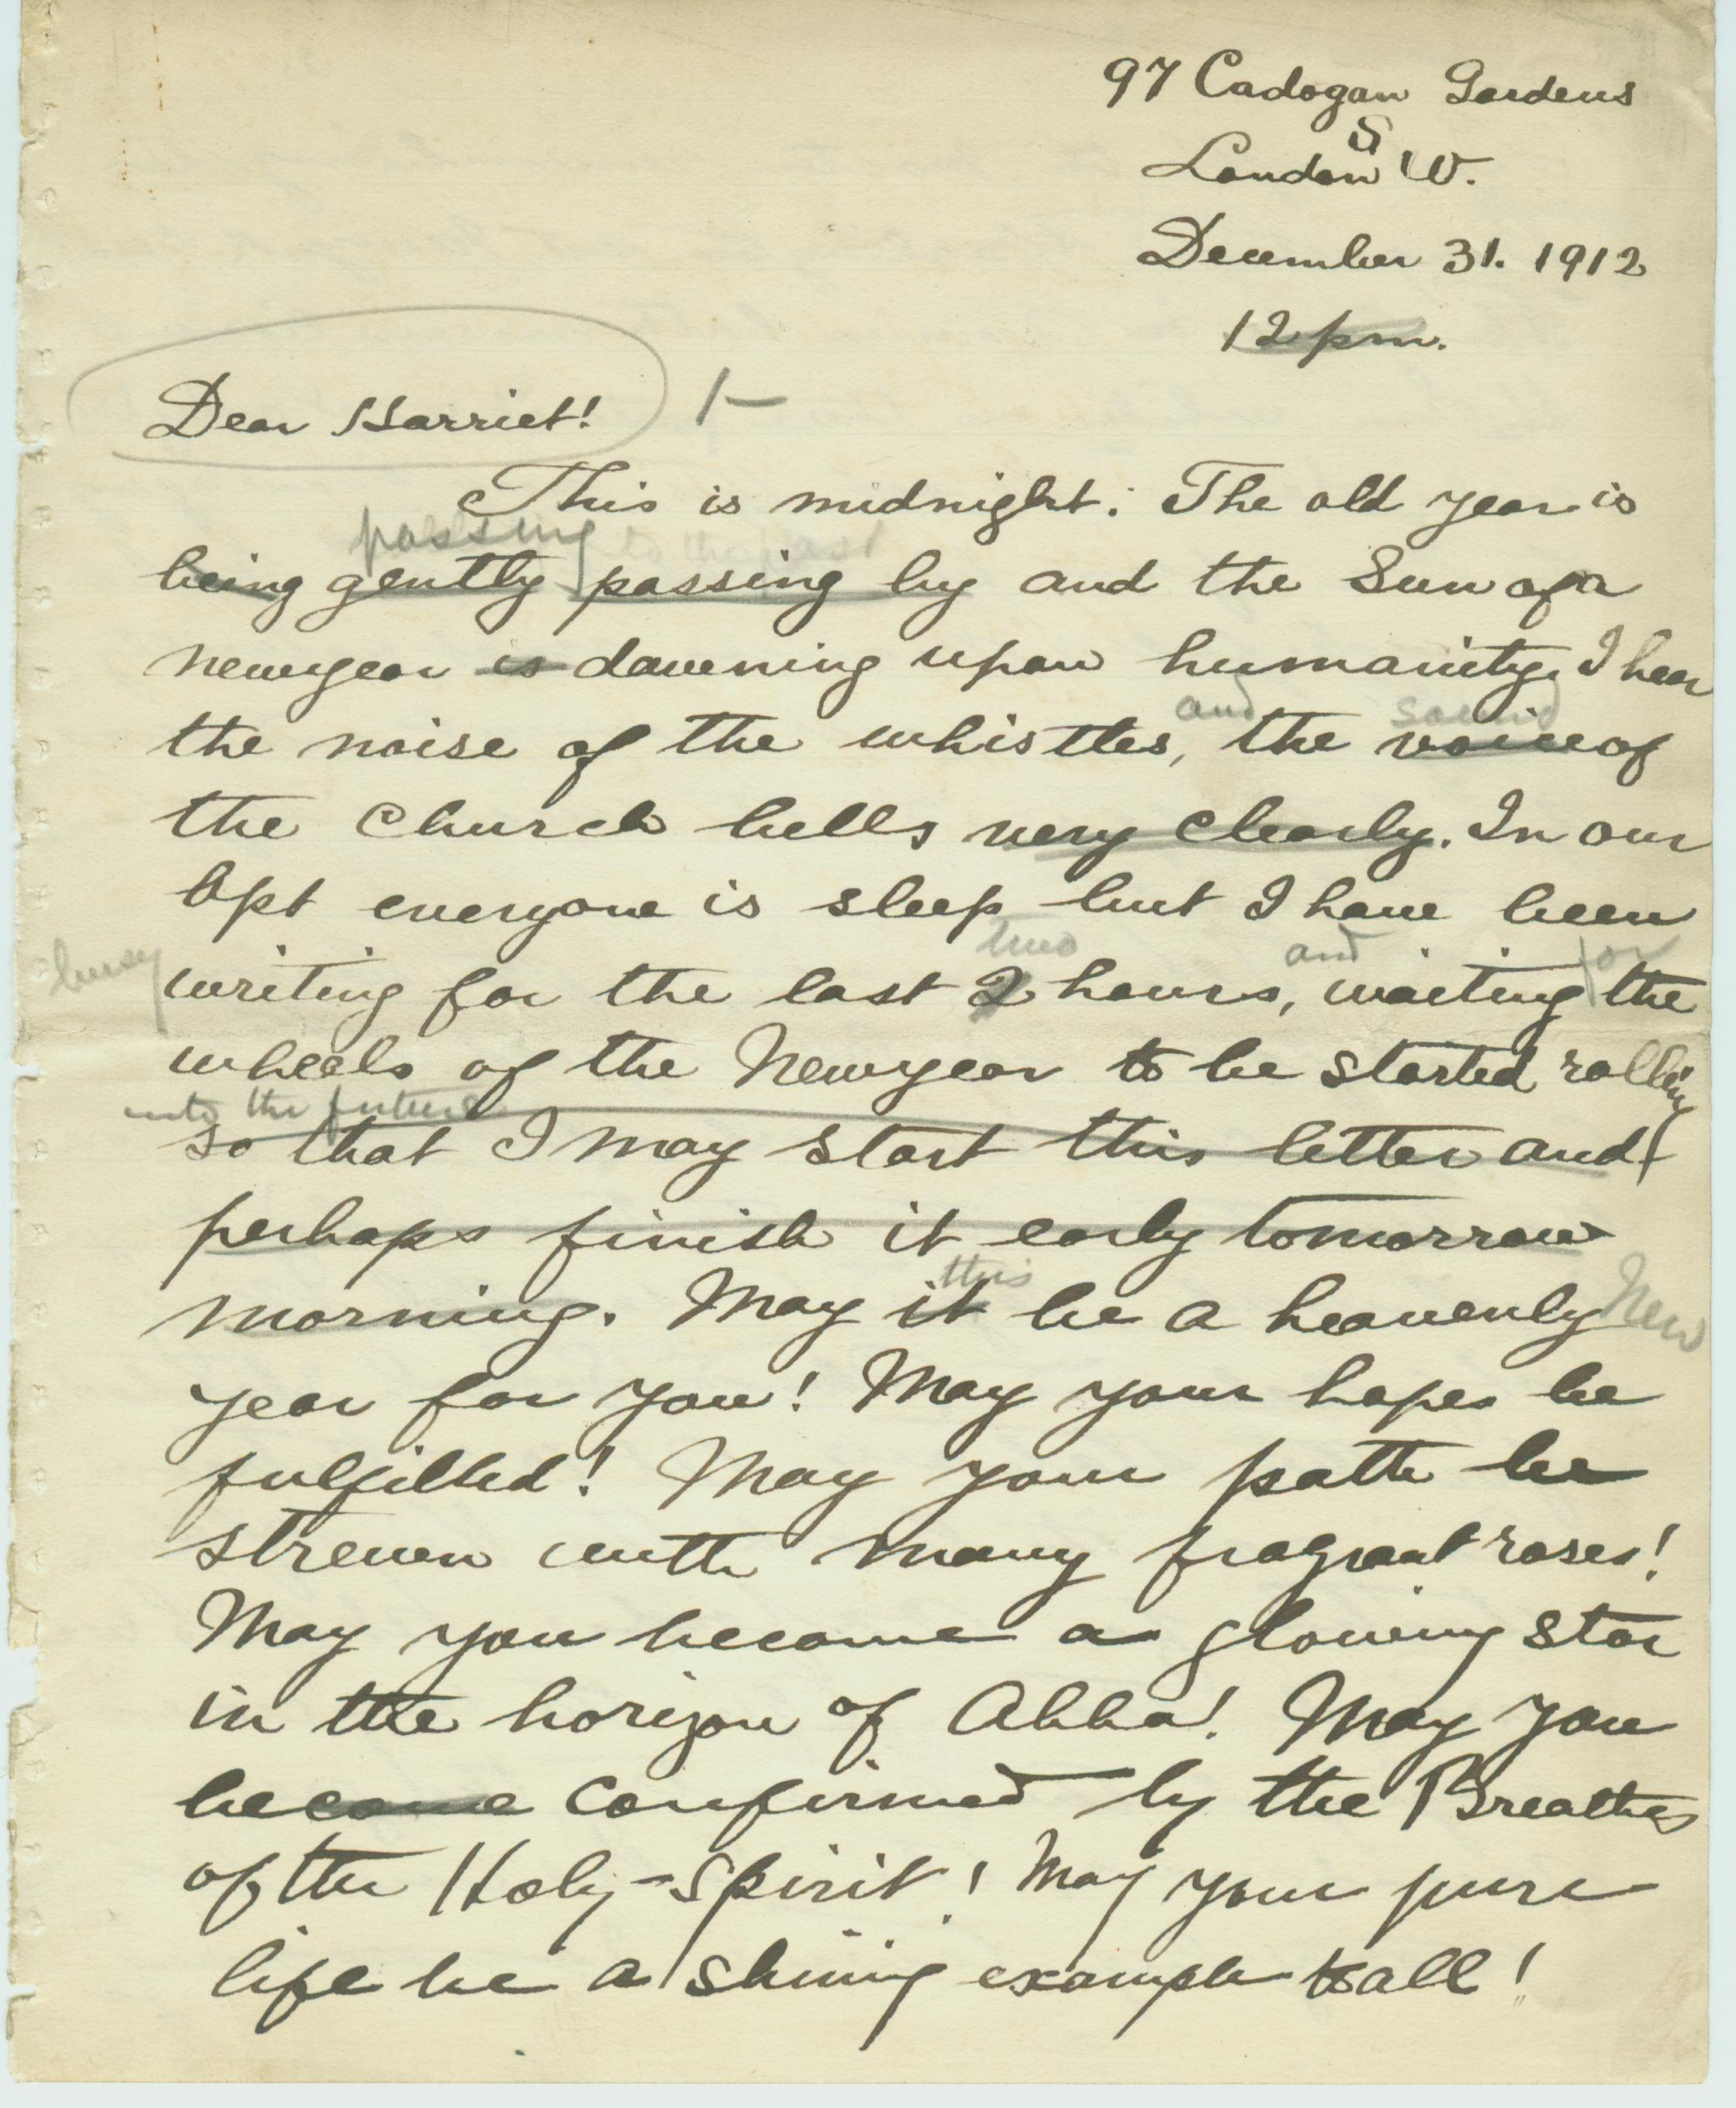 97 Cadogan Gardens
S
London W.
December 31. 1912
12 pm.
Dear Harriet! 1-
This is midnight. The old year is
passing to the past
being gently passing by and the Sun of a
newyear is dawning upon humanity. I hear
and sound
the noise of the whistles, the voice of
the church bells very clearly. In our
Apt everyone is sleep but I have been
two and for
busy writing for the last 2 hours, waiting the
wheels of the Newyear to be started rolling
into the future
so that I may start this letter and
perhaps finish it early tomorrow
this
morning. May it be a heavenly New
year for you! May your hopes be
fulfilled! May your path be
strewn with many fragrant roses!
May you become a glowing star
in the horizon of Abha! May you
become confirmed by the Breaths
of the Holy-Spirit! May your pure
life be a shining example to all!